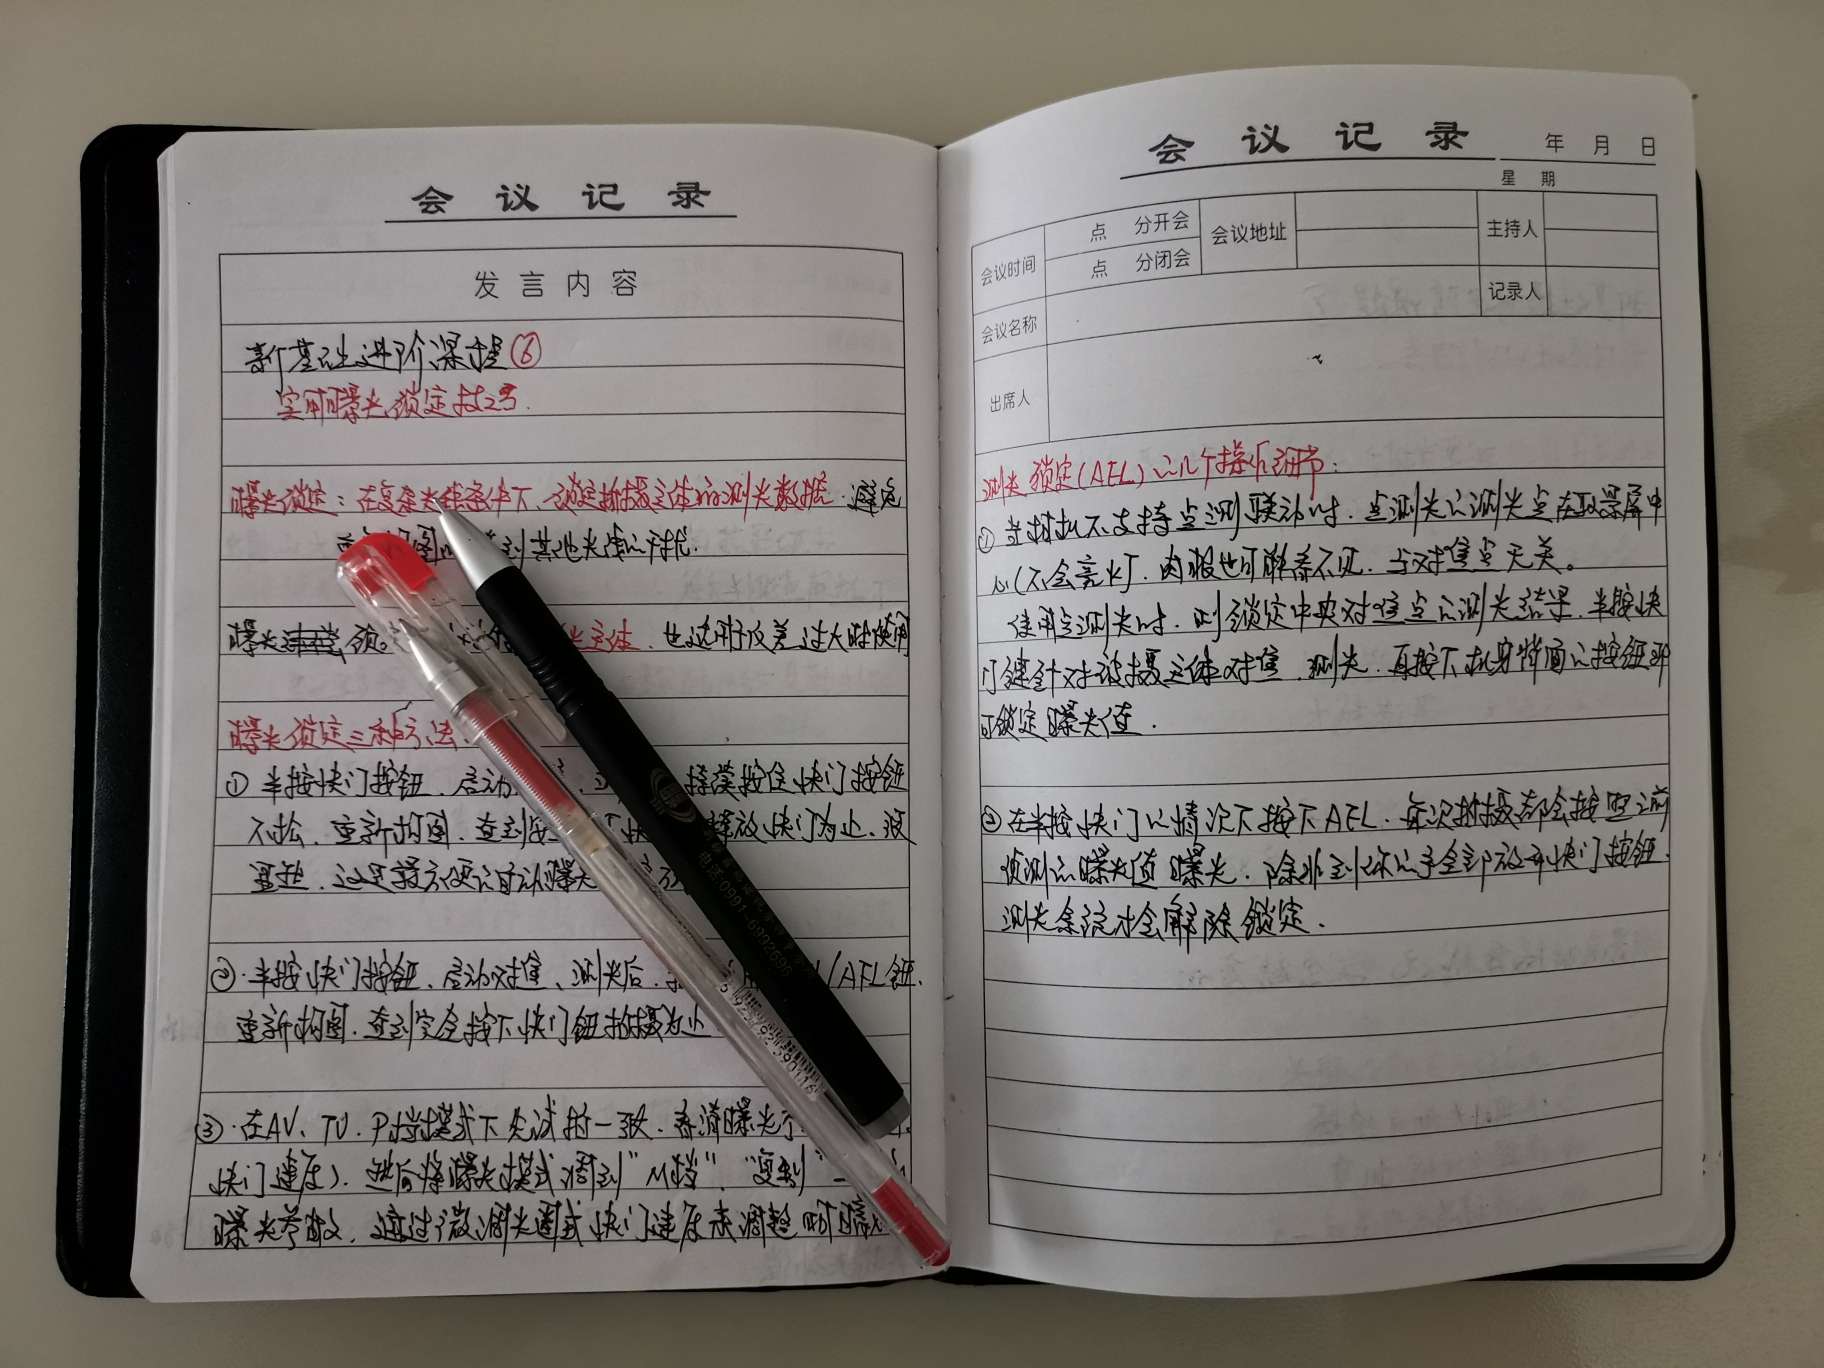 会议记录
发言内容
新基础进阶课程⑥
实用曝光锁定技巧.
曝光锁定：在复杂光线条件下、锁定拍摄主体的测光数据.避免
图 其他光线的干扰.
曝光 锁定 光主体.也适用于反差过大时使用
曝光锁定三种方法.
① 半按快门按钮.启动 持续按住快门按钮
不松.重新构图.直到 释放快门为止.
这是最方便的自动曝光
②.半按快门按钮.启动对焦、测光后. /AEL钮.
重新构图.直到完全按下快门钮拍摄为止
③.在AV、TV、P档模式下先试拍一张.看清曝光
快门速度）.然后将曝光模式调到"M档"."复制"
曝光参数.通过微调光圈或快门速度来调整
电话:0991-6992696
6 923492 390116
会议记录
年 月 日
星 期
会议时间 点 分开会 会议地址 主持人
点 分闭会 记录人
会议名称
出席人
测光锁定(AEL)的几个操作细节：
① 当相机不支持点测联动时.点测光的测光点在取景屏中
心(不会亮灯.肉眼也可能看不见.与对焦点无关。
使用点测光时.则锁定中央对焦点的测光结果.半按快
门键针对被摄主体对焦.测光.再按下机身背面的按钮即
可锁定曝光值.
②在半按快门的情况下按下AEL.每次拍摄都会按照之前
侦测的曝光值曝光.除非到你的手全部放开快门按钮.
测光系统才会解除锁定.